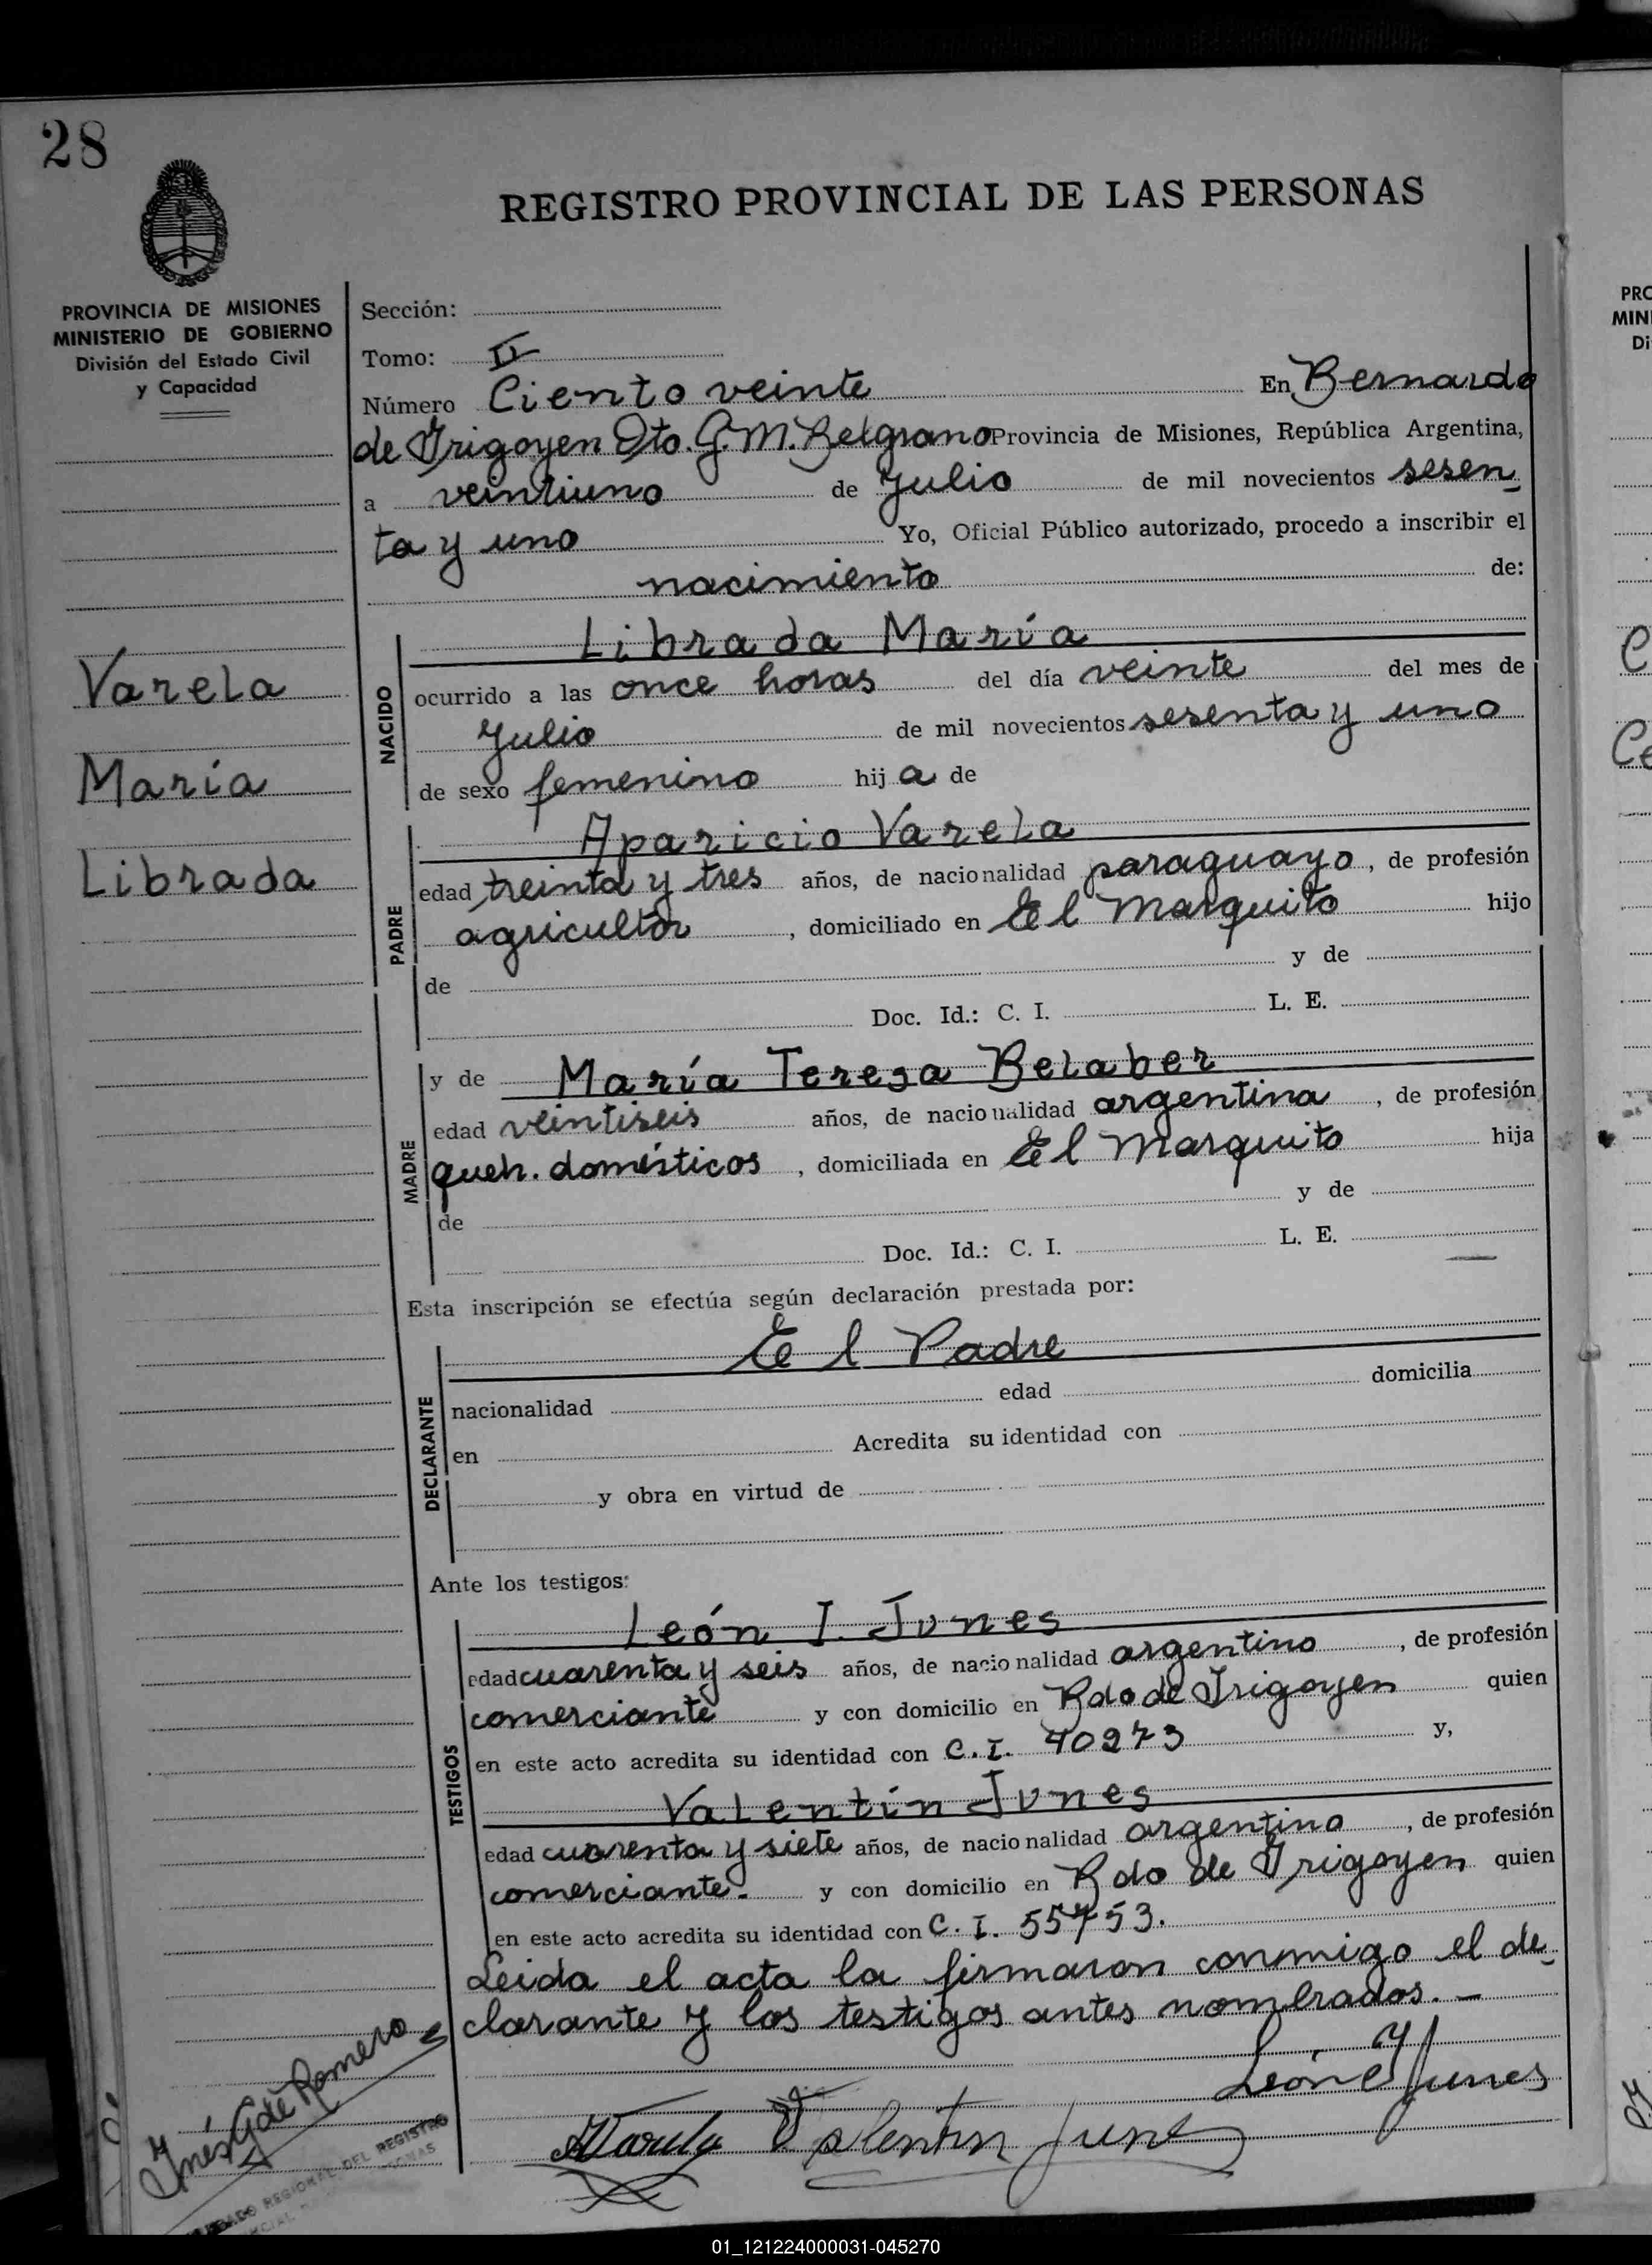 28
REGISTRO PROVINCIAL DE LAS PERSONAS
PROVINCIA DE MISIONES
MINISTERIO DE GOBIERNO
División del Estado Civil
y Capacidad
Varela
María
Librada
Sección:
Tomo: II
Número Ciento veinte En Bernardo
de Irigoyen Dto. G. M. Belgrano Provincia de Misiones, República Argentina,
a veintiuno de Julio de mil novecientos sesen
ta y uno Yo, Oficial Público autorizado, procedo a inscribir el
nacimiento de:
NACIDO
Librada María
ocurrido a las once horas del día veinte del mes de
Julio de mil novecientos sesenta y uno
de sexo femenino hija de
PADRE
Aparicio Varela
edad treinta y tres años, de nacionalidad paraguayo, de profesión
agricultor, domiciliado en El Marquito hijo
de y de
Doc. Id.: C. I. L. E.
MADRE
y de María Teresa Belaber
edad veintiseis años, de nacionalidad argentina, de profesión
queh. domésticos, domiciliada en El Marquito hija
de y de
Doc. Id.: C. I. L. E.
Esta inscripción se efectúa según declaración prestada por:
DECLARANTE
El Padre
nacionalidad edad domicilia
en Acredita su identidad con
y obra en virtud de
Ante los testigos:
TESTIGOS
León I. Junes
edad cuarenta y seis años, de nacionalidad argentino, de profesión
comerciante y con domicilio en Bdo de Irigoyen quien
en este acto acredita su identidad con C. I. 40273 y,
Valentín Junes
edad cuarenta y siete años, de nacionalidad argentino, de profesión
comerciante. y con domicilio en Bdo de Irigoyen quien
en este acto acredita su identidad con C. I. 55753.
Leida el acta la firmaron conmigo el de
clarante y los testigos antes nombrados. -
León I Junes
AVarela Valentin Junes
Inés G de Romero
REGIONAL DEL REGISTRO
PRO
MIN
Di
01_121224000031-045270